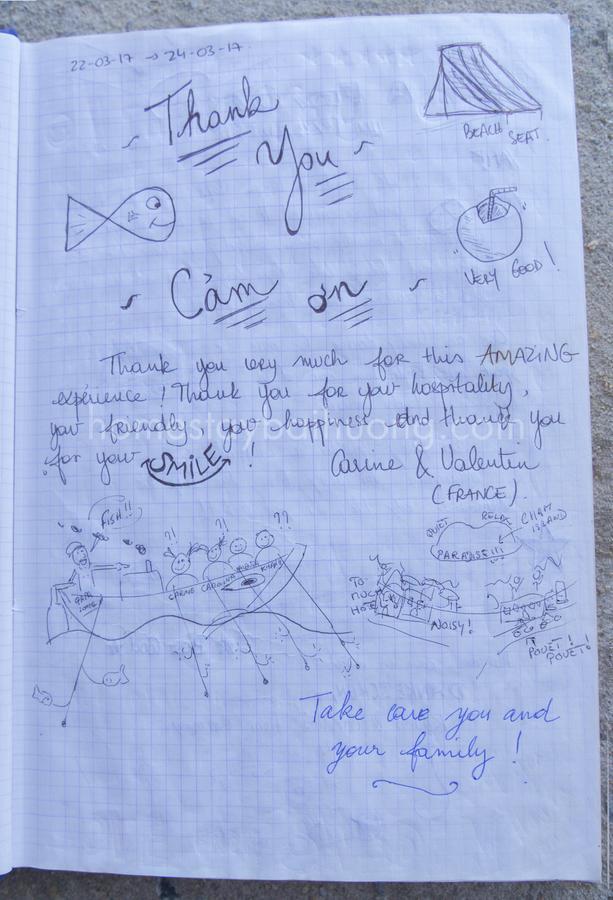 22-03-17 → 24-03-17
Thank
You
BEACH SEAT
VERY GOOD!
Cảm ơn
Thank you very much for this AMAZING
expérience! Thank you for your hospitality,
your friendly, your happiness and thank you
for your SMILE!
homestaybaihuong.com
Carine & Valentin
(FRANCE).
FISH!!
?! ?! ??
CARINE
QUIET RELAX CHAM ISLAND
PARADISE!!!
TO MUCH HOTEL
NOISY!
POUET! POUET!
Take care you and
your family!